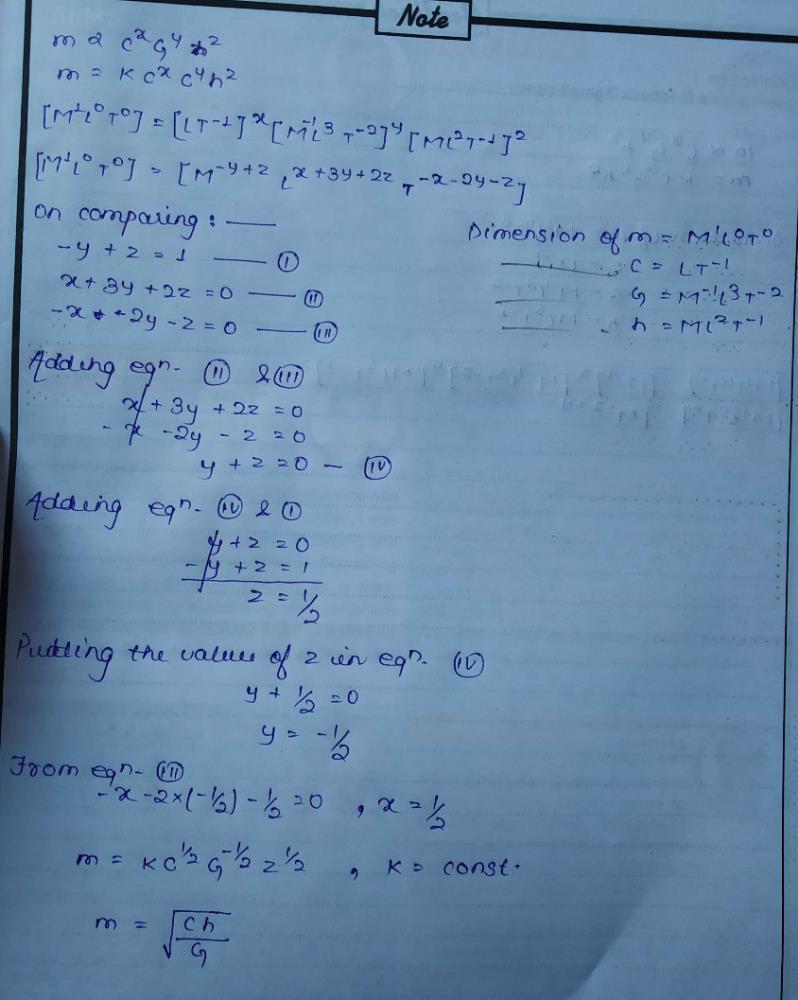 Note
m α c^x G^y h^z
m = K c^x c^y h^z
[M^1 L^0 T^0] = [LT^-1]^x [M^-1 L^3 T^-2]^y [ML^2 T^-1]^z
[M^1 L^0 T^0] = [M^-y+z L^x+3y+2z T^-x-2y-z]
On comparing: —
-y + z = 1 — (I)
x + 3y + 2z = 0 — (II)
-x + -2y - z = 0 — (III)
Dimension of m = M^1 L^0 T^0
c = LT^-1
G = M^-1 L^3 T^-2
h = ML^2 T^-1
Adding eqn. (II) & (III)
x + 3y + 2z = 0
- x - 2y - z = 0
y + z = 0 — (IV)
Adding eqn. (IV) & (I)
y + z = 0
- y + z = 1
z = 1/2
Putting the values of z in eqn. (IV)
y + 1/2 = 0
y = -1/2
From eqn- (III)
-x - 2×(-1/2) - 1/2 = 0 , x = 1/2
m = K C^1/2 G^-1/2 z^1/2 , K = const.
m = √(ch/G)